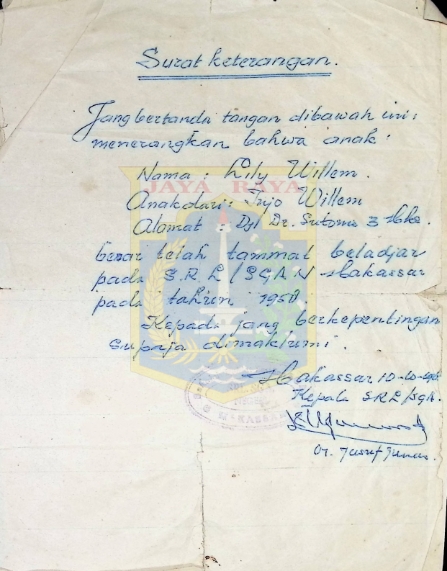 Surat keterangan.
Jang bertanda tangan dibawah ini:
menerangkan bahwa anak:
Nama : Lily Willem.
JAYA RAYA
Anak dari: Injo Willem
Alamat : Djl Dr. Sutomo 3 Mks.
benar telah tammat beladjar
pada S.R.L/SGAN Makassar
pada tahun 1958.
Kepada jang berkepentingan
supaja dimaklumi.
Makassar 10-10-
Kepala S.R.L/SGA.
MAKASSAR